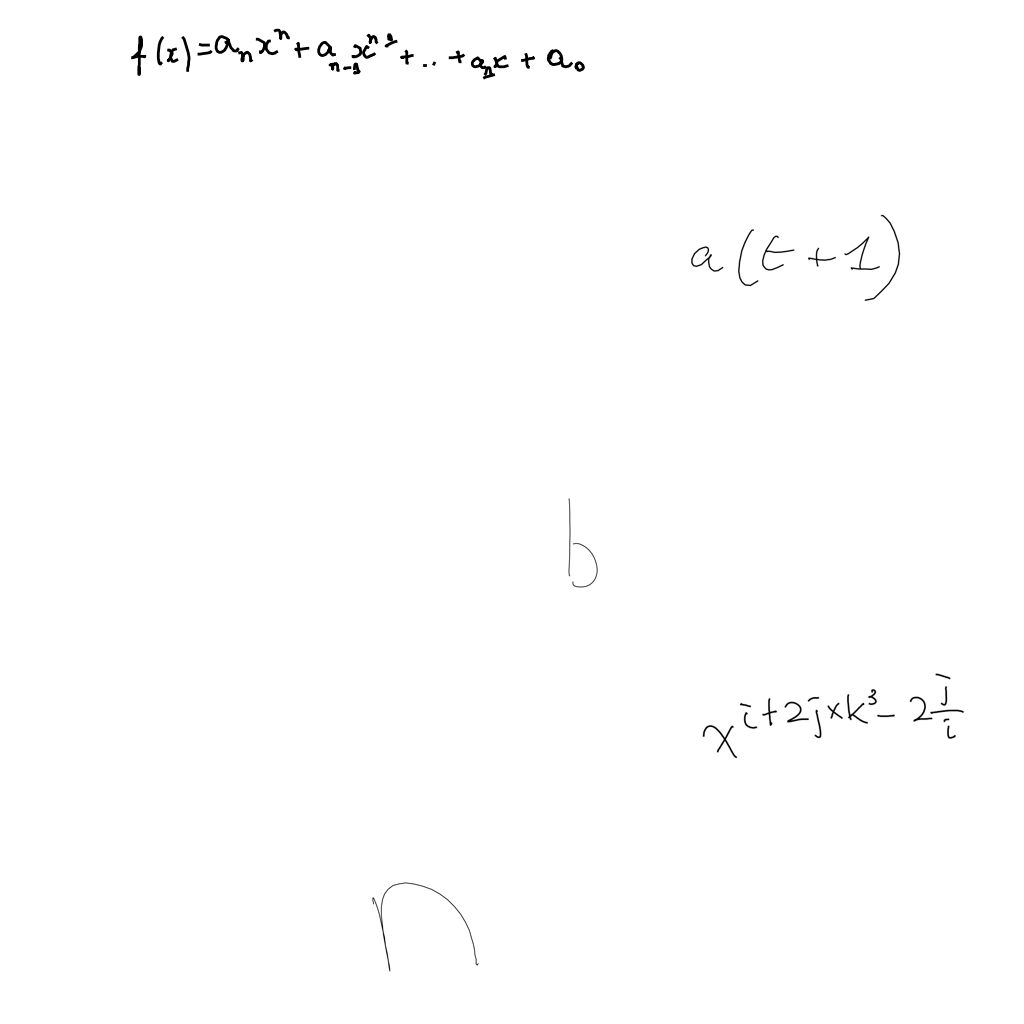 f(x)=a_n x^n + a_{n-1} x^{n-1} + .. + a_1 x + a_0
a(t+1)
b
x^{i+2j×k^3-2\frac{j}{i}}
n